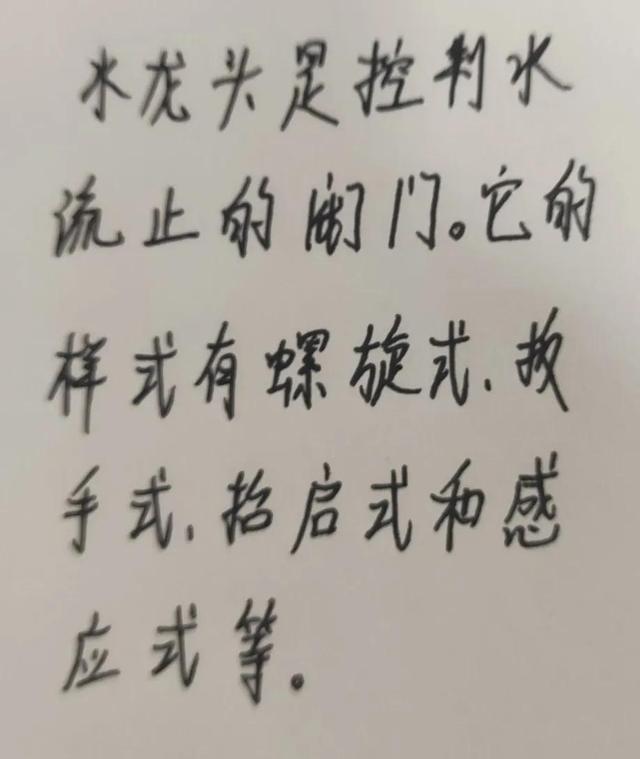 水龙头是控制水
流止的阀门。它的
样式有螺旋式、扳
手式、抬启式和感
应式等。